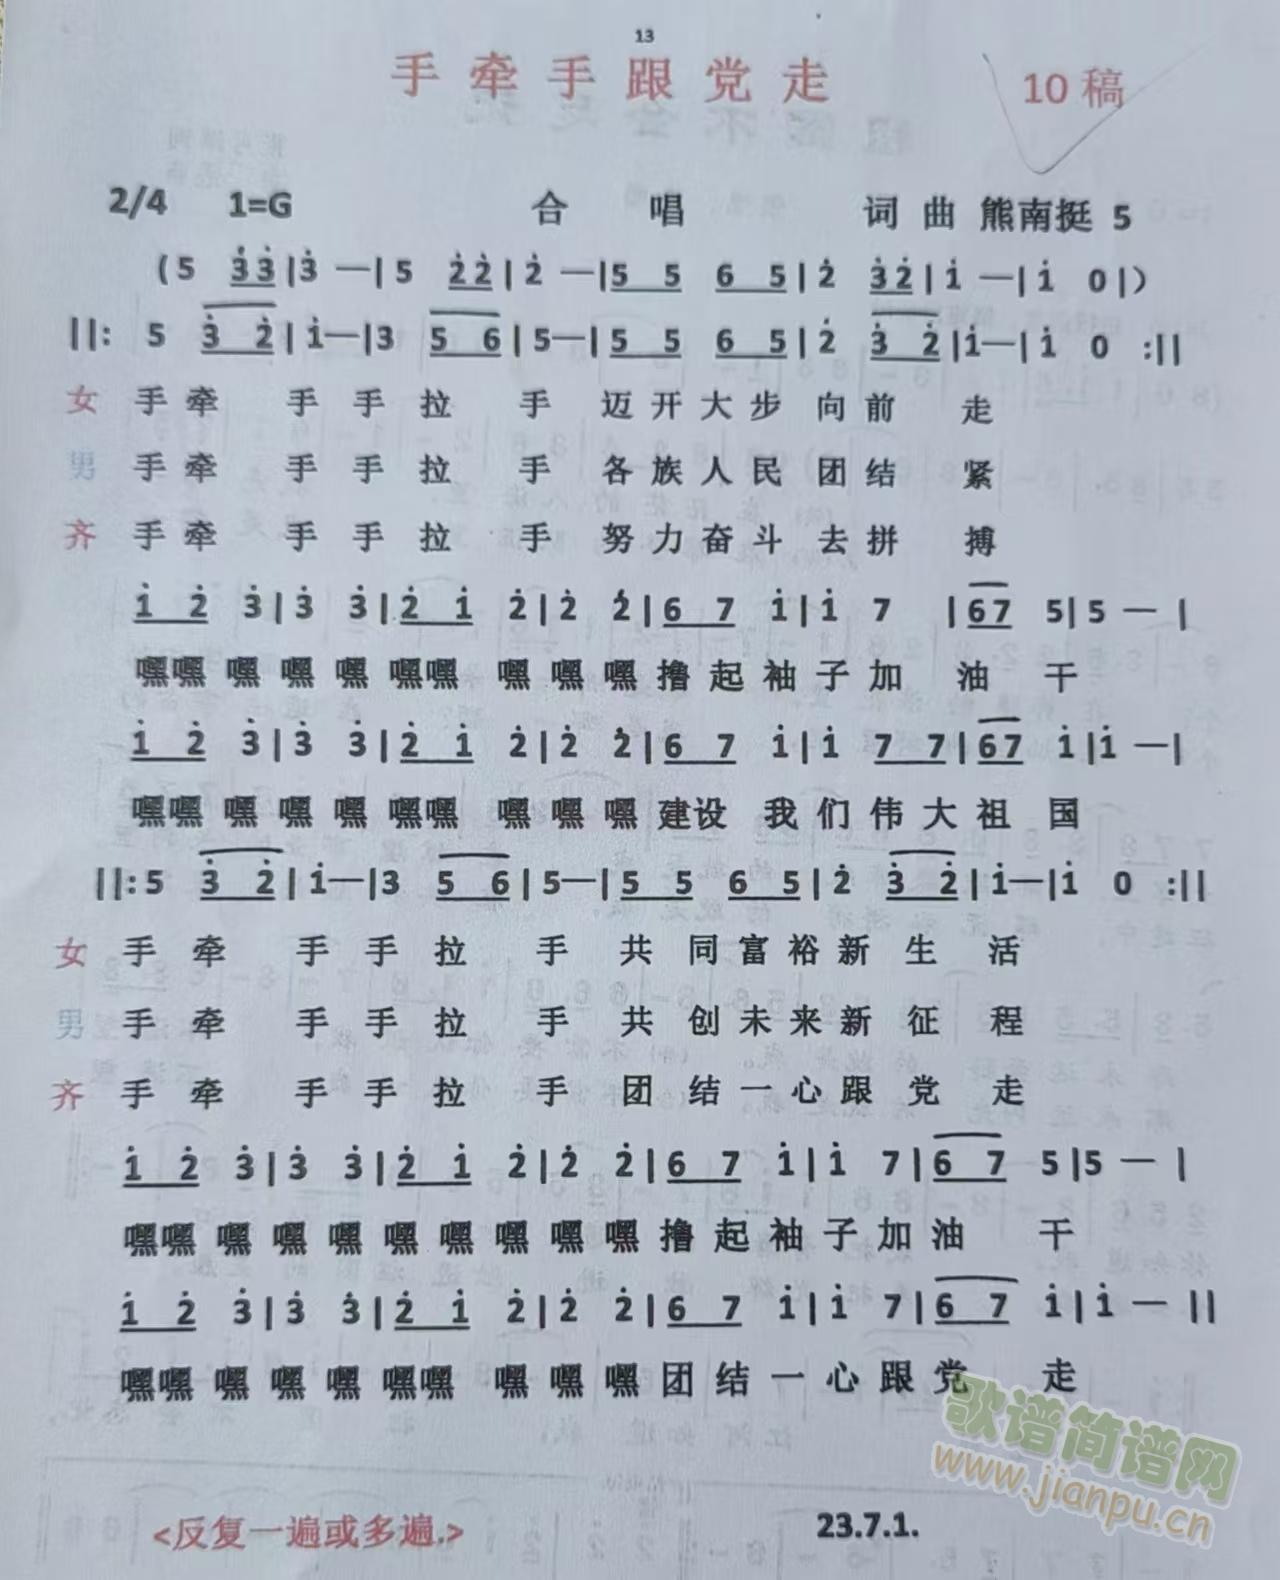 13
手牵手跟党走 10稿
2/4 1=G 合唱 词曲 熊南挺 5
(5 3̇3̇|3̇ —|5 2̇2̇|2̇ —|5 5 6 5|2̇ 3̇2̇|1̇ —|1̇ 0|)
||: 5 3̇ 2̇|1̇—|3 5 6|5—|5 5 6 5|2̇ 3̇ 2̇|1̇—|1̇ 0 :||
女 手牵 手手拉 手 迈开大步向前 走
男 手牵 手手拉 手 各族人民团结 紧
齐 手牵 手手拉 手 努力奋斗去拼 搏
1̇ 2̇ 3̇|3̇ 3̇|2̇ 1̇ 2̇|2̇ 2̇|6 7 1̇|1̇ 7 |67 5|5 —|
嘿嘿 嘿 嘿 嘿 嘿嘿 嘿 嘿 嘿 撸起袖子加 油 干
1̇ 2̇ 3̇|3̇ 3̇|2̇ 1̇ 2̇|2̇ 2̇|6 7 1̇|1̇ 7 7|67 1̇|1̇ —|
嘿嘿 嘿 嘿 嘿 嘿嘿 嘿 嘿 嘿 建设 我们伟大祖 国
||:5 3̇ 2̇|1̇—|3 5 6|5—|5 5 6 5|2̇ 3̇ 2̇|1̇—|1̇ 0 :||
女 手牵 手手拉 手 共同富裕新生 活
男 手牵 手手拉 手 共创未来新征 程
齐 手牵 手手拉 手 团结一心跟党 走
1̇ 2̇ 3̇|3̇ 3̇|2̇ 1̇ 2̇|2̇ 2̇|6 7 1̇|1̇ 7|6 7 5|5 —|
嘿嘿 嘿 嘿 嘿 嘿 嘿 嘿 嘿 嘿 撸起袖子加油 干
1̇ 2̇ 3̇|3̇ 3̇|2̇ 1̇ 2̇|2̇ 2̇|6 7 1̇|1̇ 7|6 7 1̇|1̇ —||
嘿嘿 嘿 嘿 嘿 嘿嘿 嘿 嘿 嘿 团结一心跟党 走
歌谱简谱网
www.jianpu.cn
<反复一遍或多遍.> 23.7.1.